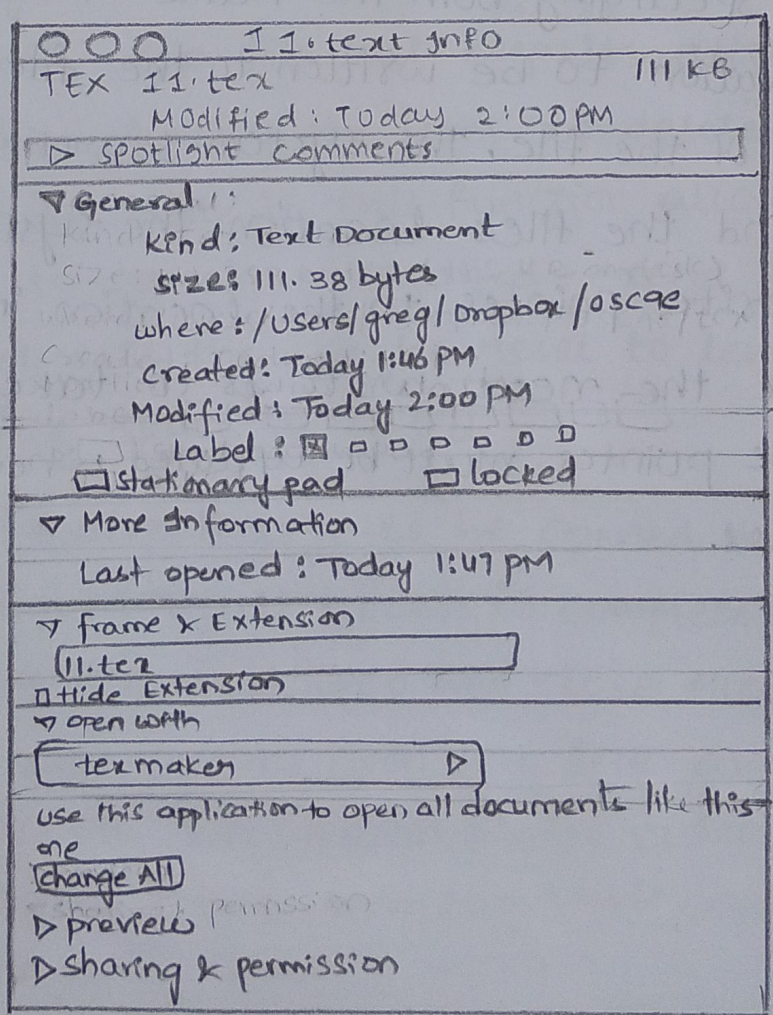 11.text Info
TEX 11.tex 111 KB
Modified: Today 2:00 PM
▷ Spotlight comments
▽ General:
Kind: Text Document
Size: 111.38 bytes
where: /Users/greg/Dropbox/oscqe
Created: Today 1:46 PM
Modified: Today 2:00 PM
Label: ☒ □ □ □ □ □ □
□ stationary pad □ locked
▽ More Information
Last opened: Today 1:47 PM
▽ frame & Extension
11.tex
□ Hide Extension
▽ open with
texmaker ▷
use this application to open all documents like this
one
Change All
▷ preview
▷ Sharing & permission